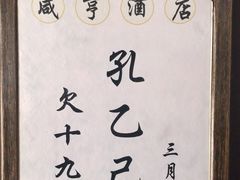 咸亨酒店
三月
孔乙己
欠十九